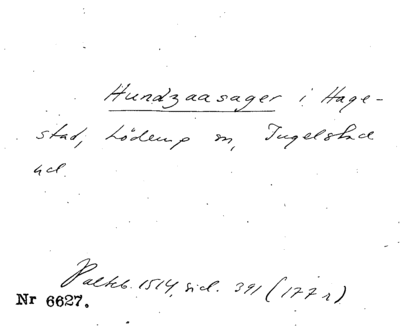 Hundzaasager i Hage-
stad, Löderup sn, Ingelstad
hd.
Palteb. 1514, sid. 391 (177 r)
Nr 6627.